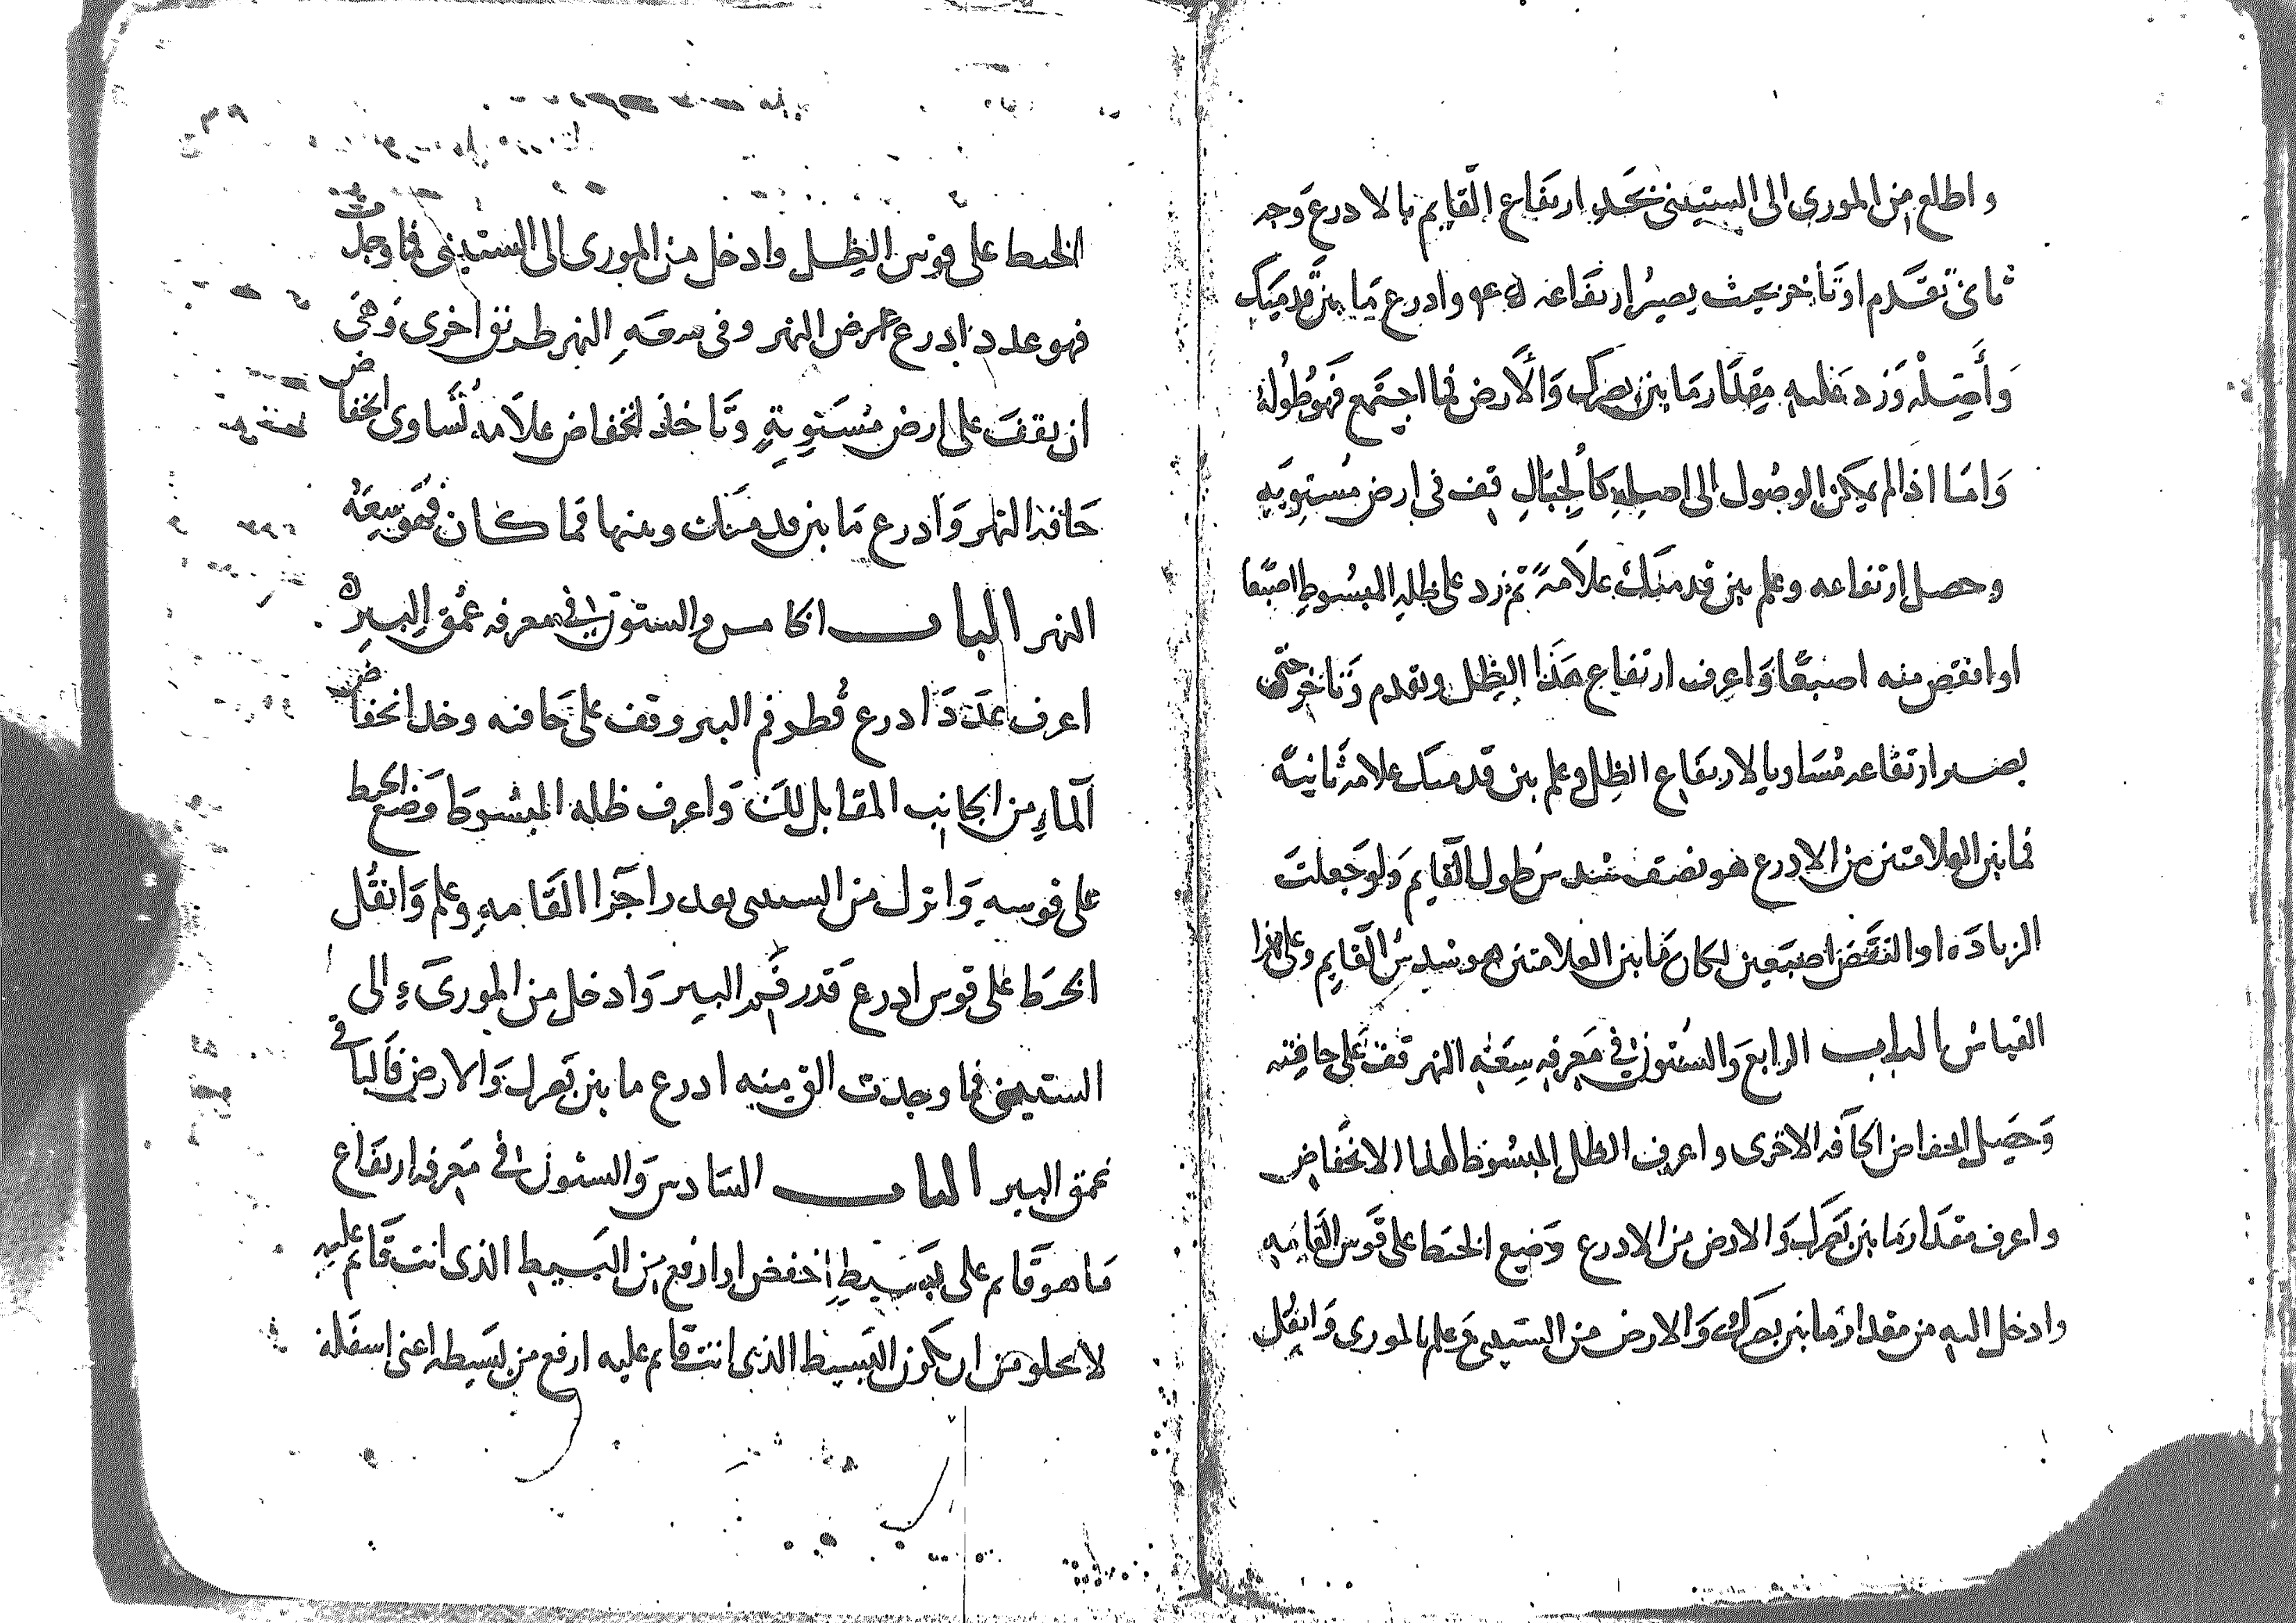 واطلع من المورى الى الستينى نحد ارتفاع القايم بالادرع وجه
ثانى تقدم او تاخر بحيث يصير ارتفاعه وادرع ما بين قدميك
وأصله وزد عليه مقدار ما بين بصرك والارض فما اجتمع فهو طوله
واما اذا لم يمكن الوصول الى اصله كالجبال قف فى ارض مستويه
وحصل ارتفاعه وعلم بين قدميك علامة ثم زد على ظله المبسوط اصبعا
او انقص منه اصبعا واعرف ارتفاع هذا الظل وتقدم وتاخر حتى
يصير ارتفاعه مساويا لارتفاع الظل وعلم بين قدميك علامة ثانية
فما بين العلامتين من الادرع هو نصف سدس طول القايم ولو جعلت
الزيادة او النقص اصبعين لكان ما بين العلامتين هو سدس القايم وعلى هذا
القياس الباب الرابع والستون فى معرفه سعة النهر قف على حافته
وحصل انخفاض الحافه الاخرى واعرف الظل المبسوط لهذا الانخفاض
واعرف مقدار ما بين بصرك والارض من الادرع وضع الخيط على قوس القامه
وادخل اليه من مقدار ما بين بصرك والارض من الستينى وعلم بالمورى وانقل
الخيط على قوس الظل وادخل من المورى الى الستينى فما وجدت
فهو عدد ادرع عرض النهر وفى سعه النهر طريق اخرى وهى
ان تقف على ارض مستوية وتاخذ انخفاض علامة تساوى انخفاض
حافة النهر وادرع ما بين قدميك وبينها فما كان فهو سعة
النهر الباب الخامس والستون فى معرفه عمق البير
اعرف عدد ادرع قطر فم البير وقف على حافته وخد انخفاض
الماء من الجانب المقابل لك واعرف ظله المبسوط وضع الخيط
على قوسه وانزل من الستينى بعدد اجزا القامه وعلم وانقل
الخيط على قوس ادرع قدر فم البير وادخل من المورى الى
الستينى فما وجدت الق منه ادرع ما بين بصرك والارض فالباقى
عمق البير الباب السادس والستون فى معرفه ارتفاع
ما هو قايم على بسيط اخفض او ارفع من البسيط الذى انت قايم عليه
لا يخلو من ان يكون البسيط الذى انت قايم عليه ارفع من بسيطه اعنى اسفله